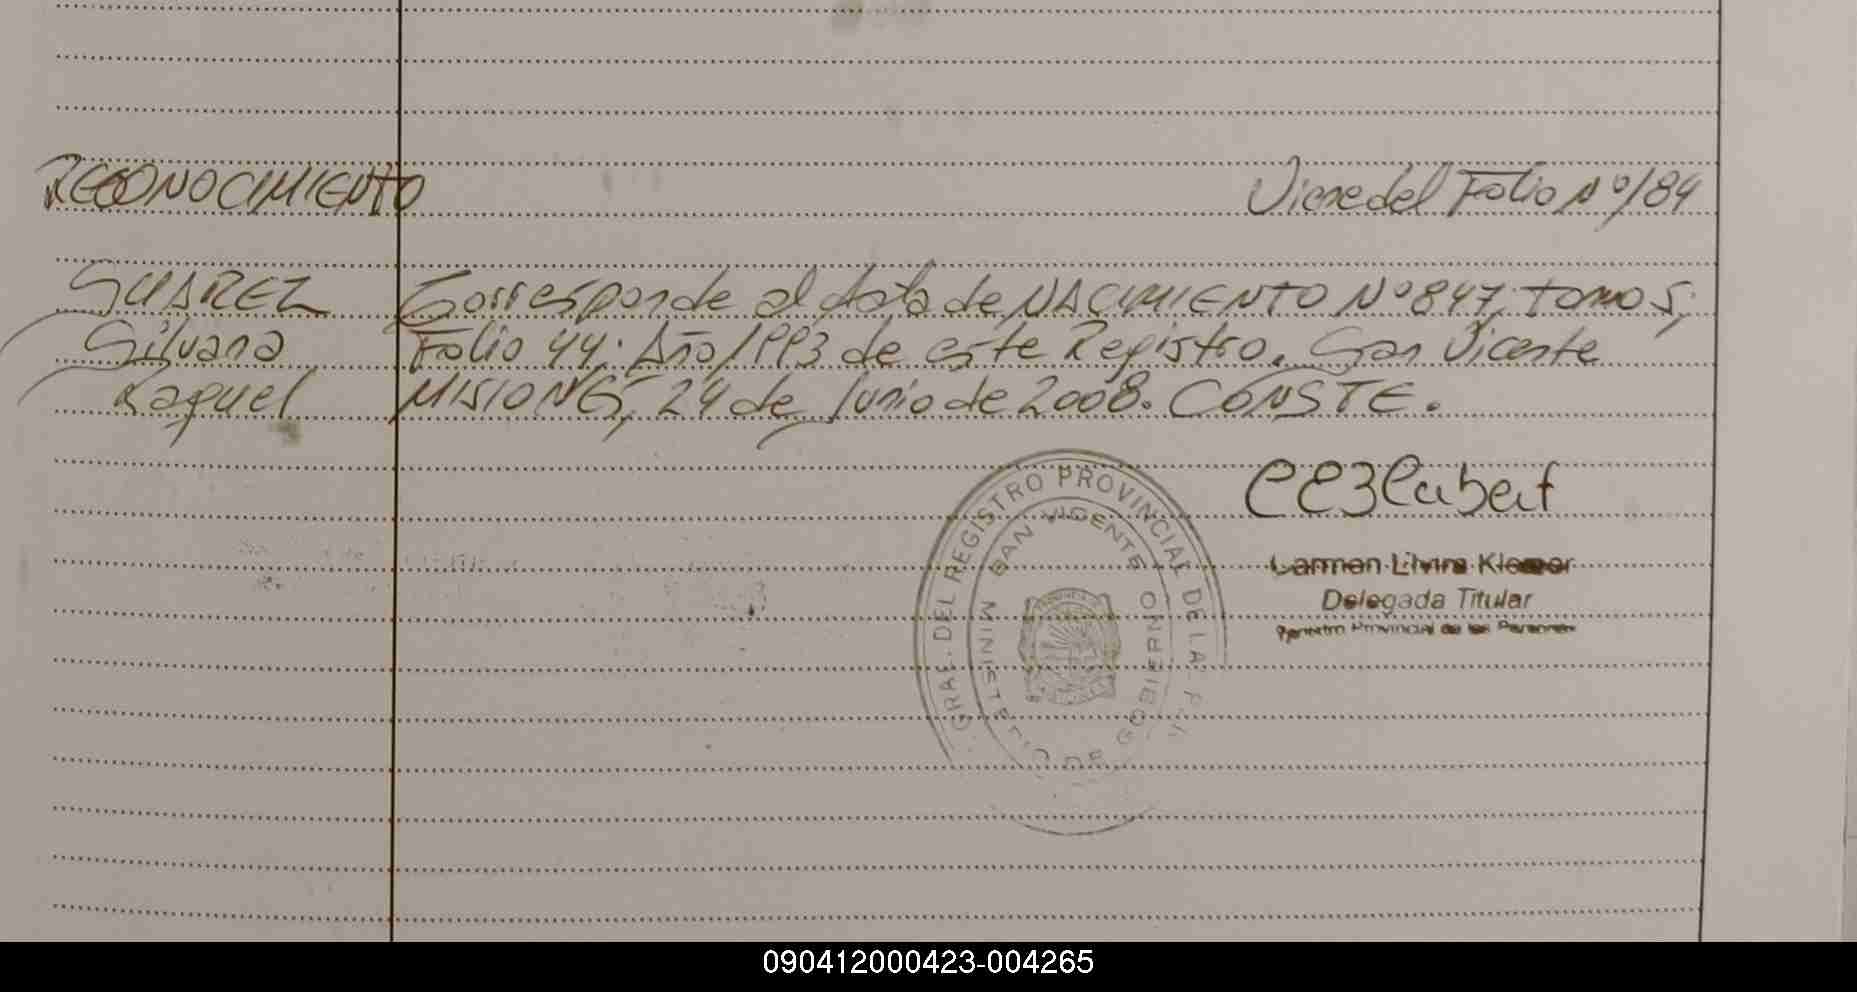 RECONOCIMIENTO
Viene del Folio Nº/84
SUAREZ
Silvana
Raquel
Corresponde al Acta de NACIMIENTO Nº 847, tomo 5;
Folio 44. Año/1993 de este Registro. San Vicente
MISIONES, 24 de Junio de 2008. CONSTE.
Carmen
Delegada Titular
Registro Provincial de las Personas
GRAL. DEL REGISTRO PROVINCIAL DE LA
SAN VICENTE
GOBIERNO
090412000423-004265